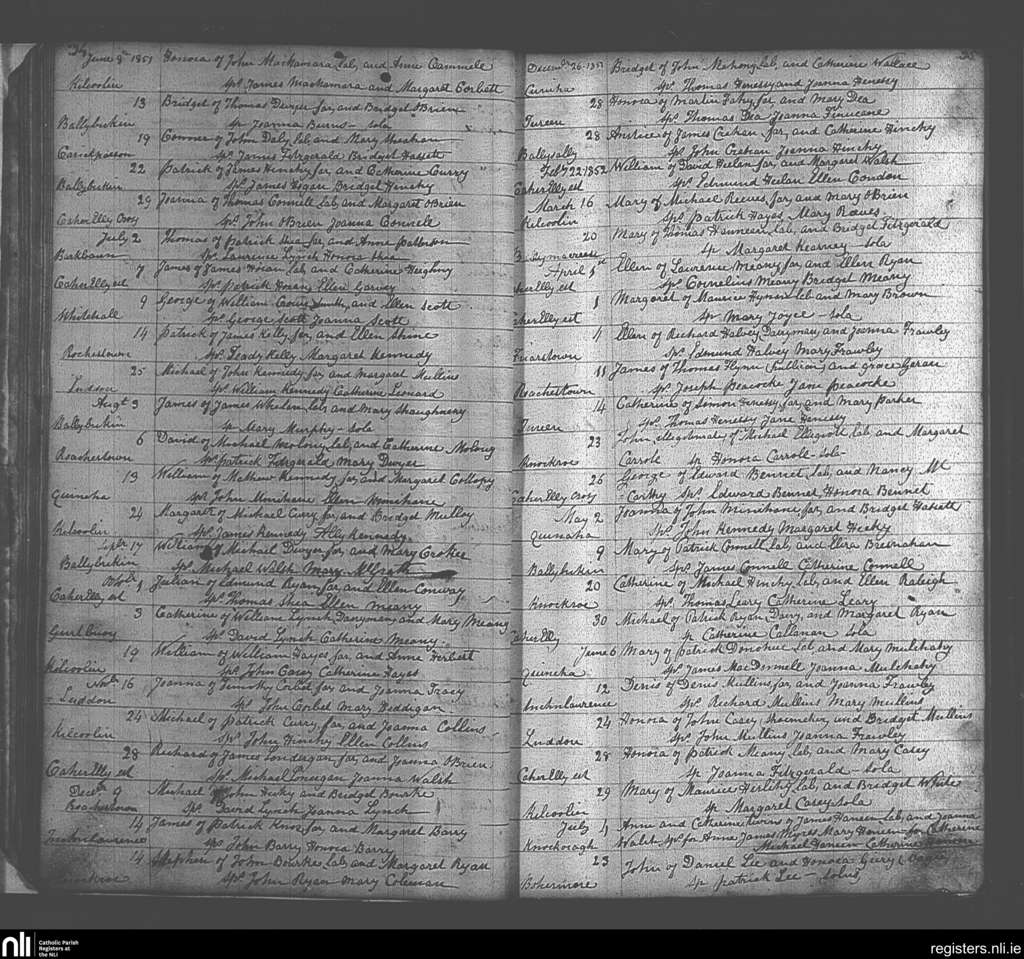 34
June 8th 1851 Honora of John Mackamara lab, and Anne Cammell
Kilcoolin Sprs James Mackamara and Margaret Corbett
13 Bridget of Thomas Dwyer far, and Bridget O'Brien
Ballybrikin Sp Joanna Burns - sola
19 Connor of John Daly lab, and Mary Sheehan
Carrickparson Sprs James Fitzgerald Bridget Hassett
22 Patrick of James Hinchy far, and Catherine Curry
Ballybrikin Sprs James Hogan Bridget Hinchy
29 Joanna of Thomas Connell Lab, and Margaret O'Brien
Caher Elly Croy Sprs John O'Brien Joanna Connell
July 2 Thomas of Patrick Shea far, and Anne Patterson
Sprs Laurence Lynch Honora Shea
7 James of James Horan lab, and Catherine
Caher Elly est Sprs Patrick Horan Ellen Garvey
9 George of William Crowe Smith, and Ellen Scott
Whitehall Sprs George Scott Joanna Scott
14 Patrick of James Kelly far, and Ellen Shine
Rochestown Sprs Thady Kelly Margaret Kennedy
25 Michael of John Kennedy far, and Margaret Mullins
Luddon Sprs William Kennedy Catherine Leonard
Augt 3 James of James Whelan lab, and Mary Shaughnesy
Ballybrikin Sp Mary Murphy - sola
6 David of Michael Molony lab, and Catherine Molony
Roachestown Sprs Patrick Fitzgerald Mary Dwyer
13 William of Mathew Kennedy far, and Margaret Collopy
Quinaha Sprs John Minihane Ellen Minihane
24 Margaret of Michael Curry far, and Bridget Mulloy
Kilcoolin Sprs James Kennedy Ally Kennedy
Septr 17 William of Michael Dwyer far, and Mary Crokee
Ballybrikin Sprs Michael Walsh Mary McGrath
Octobr 1 Julian of Edmund Ryan far, and Ellen Conway
Caher Elly est Sprs Thomas Shea Ellen Meany
3 Catherine of William Lynch Dairyman, and Mary Meany
Sprs David Lynch Catherine Meany
19 William of William Hayes far, and Anne Herbert
Kilcoolin Sprs John Carey Catherine Hayes
Novbr 16 Joanna of Timothy Corbet far, and Joanna Tracy
Luddon Sprs John Corbet Mary Heddigan
24 Michael of Patrick Curry far, and Joanna Collins
Kilcoolin Sprs John Hinchy Ellen Collins
28 Richard of James Londergan far, and Joanna O'Brien
Caher Elly est Sprs Michael Lonergan Joanna Walsh
Decbr 9 Michael of John Hicky and Bridget Bourke
Roachestown Sprs David Lynch Joanna Lynch
14 James of Patrick Knox far, and Margaret Barry
Inchinlaurence Sprs John Barry Honora Barry
14 Stephen of John Bourke Lab, and Margaret Ryan
Knockroe Sprs John Ryan Mary Coleman
35
Decembr 26. 1851 Bridget of John Mahony Lab, and Catherine Wallace
Sprs Thomas Henessy and Joanna Henessy
28 Honora of Martin Fahy far, and Mary Dea
Tureen Sprs Thomas Dea Joanna Finucane
28 Anstice of James Crehan far, and Catherine Hinchy
Ballysally Sprs John Crehan Joanna Hinchy
Feby 22 1852 William of David Heelan far, and Margaret Walsh
Caher Elly est Sprs Edmund Heelan Ellen Condon
March 16 Mary of Michael Reeves far, and Mary O'Brien
Kilcoolin Sprs Patrick Hayes Mary Reeves
20 Mary of Thomas Hannean Lab, and Bridget Fitzgerald
Sp Margaret Kearney - sola
April 1st Ellen of Laurence Meany far, and Ellen Ryan
Caher Elly est Sprs Cornelius Meany Bridget Meany
1 Margaret of Maurice Hynan lab and Mary Brown
Caher Elly est Sp Mary Joyce - sola
4 Ellen of Richard Halvey Dairyman, and Joanna Frawley
Friarstown Sprs Edmund Halvey Mary Frawley
11 James of Thomas Flynn (Publican) and Grace Geran
Roachestown Sprs Joseph Peacocke Jane Peacocke
14 Catherine of Simon Henessy far, and Mary Parker
Tureen Sprs Thomas Henessy Jane Henessy
23 John, illegitimate, of Michael Elligott lab, and Margaret
Knockroe Carrole Sp Honora Carroll - sola
26 George of Edward Bennet, lab, and Nancy Mc
Caher Elly Croy Carthy Sprs Edward Bennet, Honora Bennet
May 2 Joanna of John Minihane far, and Bridget Hassett
Quinaha Sprs John Kennedy Margaret Hicky
9 Mary of Patrick Connell Lab, and Eliza Bresnahan
Ballybrikin Sprs James Connell Catherine Connell
20 Catherine of Michael Hinchy Lab, and Ellen Raleigh
Knockroe Sprs Thomas Leary Catherine Leary
30 Michael of Patrick Ryan Dairy, and Margaret Ryan
Caher Elly Sp Catherine Callanan sola
June 6 Mary of Patrick Donohue Lab, and Mary Mulchahy
Quincha Sprs James MacDonnell Joanna Mulchahy
12 Denis of Denis Mullins far, and Joanna Frawley
Inchinlaurence Sprs Richard Mullins Mary Mullins
24 Honora of John Casey Shoemaker, and Bridget Mullins
Luddon Sprs John Mullins Joanna Frawley
28 Honora of Patrick Meany Lab, and Mary Casey
Caher Elly est Sp Joanna Fitzgerald - sola
29 Mary of Maurice Herlihy Lab, and Bridget White
Kilcoolin Sp Margaret Casey sola
July 4 Anne and Catherine twins of James Haneen Lab, and Joanna
Walsh Sprs for Anne James Myres Mary Haneen - for Catherine
Michael Haneen Catherine
23 John of Daniel Lee and Honora
Bohermore Sp Patrick Lee - solus
nli Catholic Parish
Registers at
the NLI
registers.nli.ie